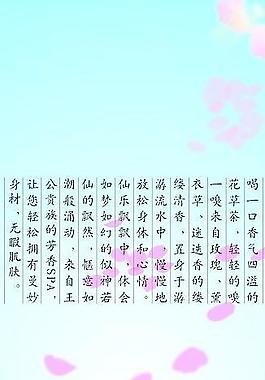 喝一口香气四溢的
花草茶,轻轻的嗅
一嗅来自玫瑰、薰
衣草、迷迭香的缕
缕清香,置身于潺
潺流水中,慢慢地
放松身体和心情。
仙乐飘飘中,体会
如梦如幻的似神若
仙的飘然,惬意如
潮般涌动,来自王
公贵族的芳香SPA,
让您轻松拥有曼妙
身材、无暇肌肤。